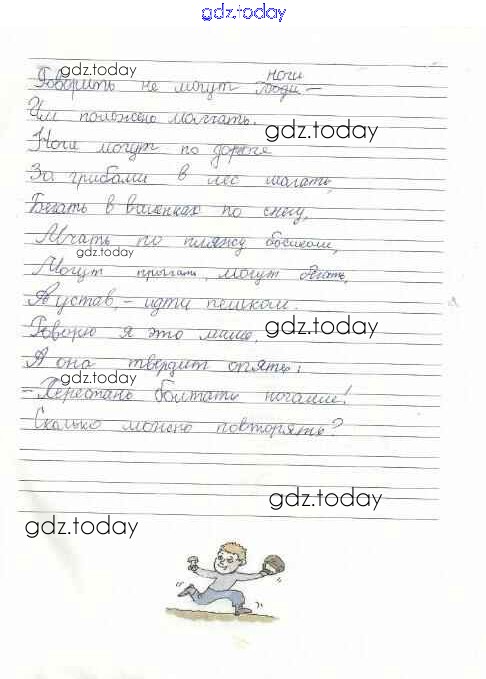 gdz.today
gdz.today
ноги
Говорить не могут люди –
Им положено молчать.
gdz.today
Ноги могут по дороге
За грибами в лес шагать,
Бегать в валенках по снегу,
Мчать по пляжу босиком,
gdz.today
Могут прыгать, могут бегать,
А устав, – идти пешком.
Говорю я это маме,
gdz.today
А она твердит опять:
gdz.today
– Перестань болтать ногами!
Сколько можно повторять?
gdz.today
gdz.today